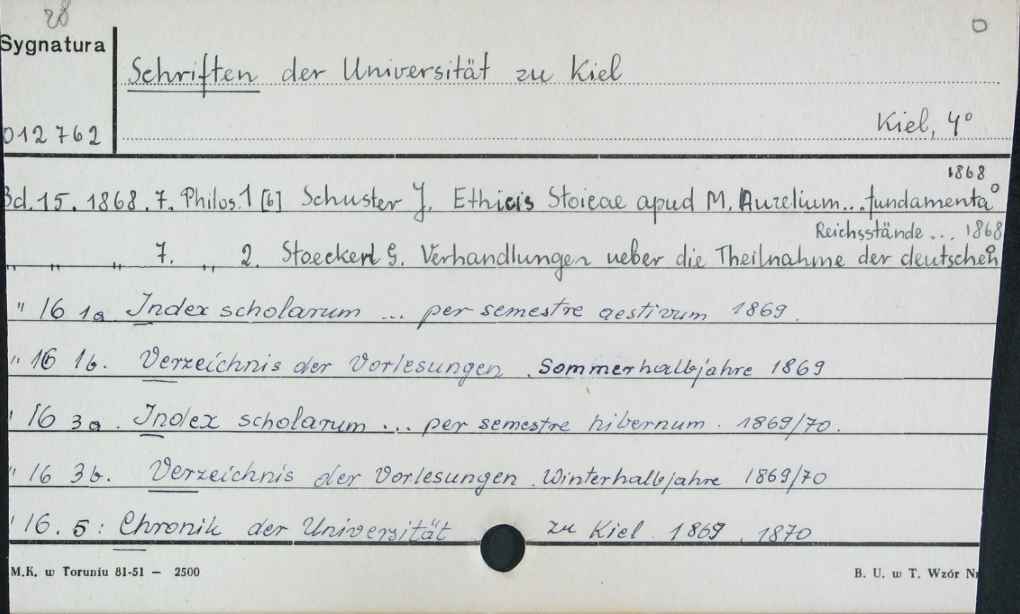 28
Sygnatura
Schriften der Universität zu Kiel
012762
Kiel, 4°
1868
Bd. 15. 1868. 7. Philos. 1 [b] Schuster J. Ethicis Stoicae apud M. Aurelium... fundamenta
Reichsstände ... 1868
" " " 7. " 2. Stoeckert G. Verhandlungen ueber die Theilnahme der deutschen
" 16 1a Index scholarum ... per semestre aestivum 1869.
" 16 1b. Verzeichnis der Vorlesungen . Sommerhalbjahre 1869
" 16 3a. Index scholarum ... per semestre hibernum. 1869/70.
" 16 3b. Verzeichnis der Vorlesungen . Winterhalbjahre 1869/70
" 16. 5: Chronik der Universität zu Kiel 1869 . 1870
M.K. w Toruniu 81-51 — 2500
B. U. w T. Wzór Nr